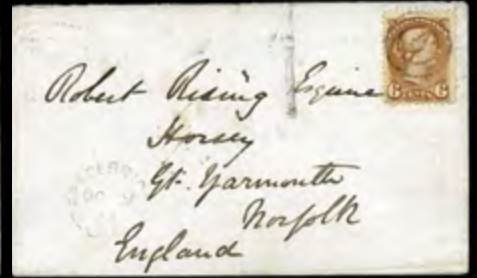 Robert Rising Esquire
Horsey
Gt. Yarmouth
Norfolk
England
6 6